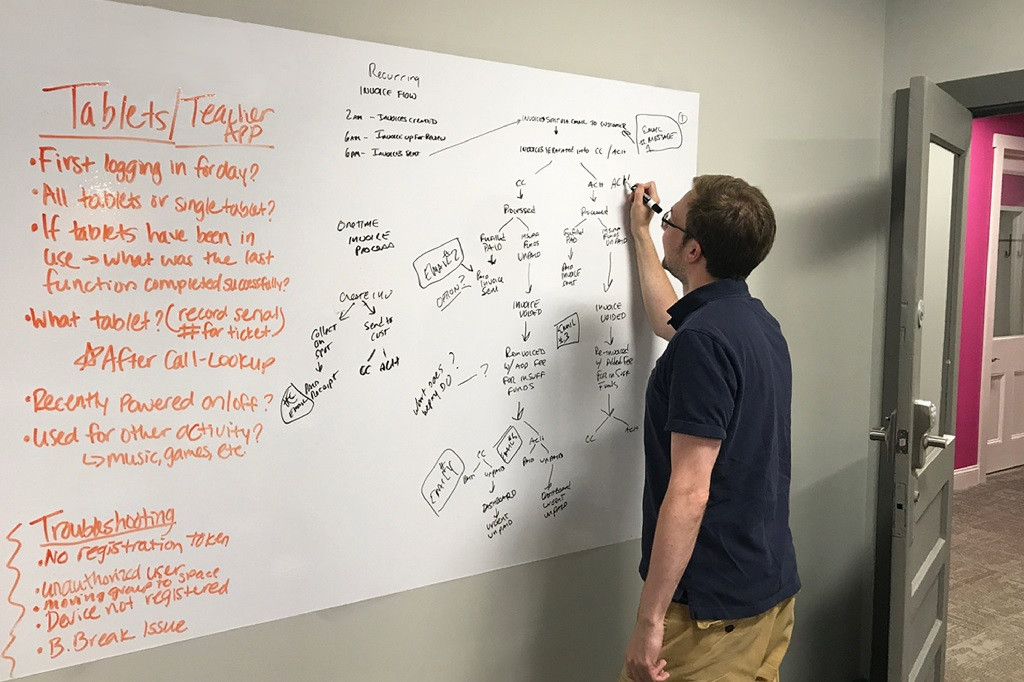 Tablets/Teacher
APP
•First logging in for day?
•All tablets or single tablet?
•If tablets have been in
use → what was the last
function completed successfully?
•What tablet? (record serial
# for ticket)
After Call-Lookup
•Recently Powered on/off?
•Used for other activity?
↳music, games, etc.
Troubleshooting
•No registration token
•unauthorized user
•moving group to space
•Device not registered
•B. Break Issue
Recurring
INVOICE FLOW
2AM - INVOICES CREATED
6AM - INVOICE UP FOR REVIEW
6PM - INVOICES SENT
INVOICES SENT VIA EMAIL TO CUSTOMER
EMAIL
MESSAGE
1
INVOICES SEPARATED INTO CC / ACH
CC
ACH
ACH
Processed
Processed
Fulfilled
PAID
INSUFF
FUNDS
UNPAID
Fulfilled
PAID
INSUFF
FUNDS
UNPAID
PAID
INVOICE
SENT
PAID
INVOICE
SENT
EMAIL 2
OPTION 2
INVOICE
VOIDED
INVOICE
VOIDED
EMAIL
#3
RE-INVOICED
W/ ADD FEE
FOR INSUFF
FUNDS
RE-INVOICED
W/ Added FEE
FOR INSUFF
Funds
CC
ACH
CC
ACH
PAID
UNPAID
PAID
UNPAID
EMAIL
DASHBOARD
URGENT
UNPAID
DASHBOARD
URGENT
UNPAID
ONETIME
INVOICE
PROCESS
Create INV
Collect
ON
SPOT
Send to
CUST
CC
ACH
PAID
RECEIPT
EMAIL
what does
DO?
?